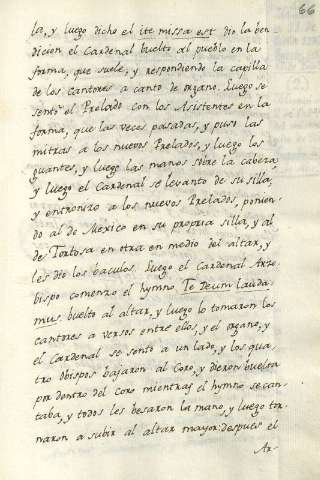 66
la, y luego dicho el ite missa est dio la ben-
dicion el Cardenal buelto al pueblo en la
forma, que suele, y respondiendo la capilla
de los cantores a canto de organo. Luego se
sentò el Prelado con los Asistentes en la
forma, que las veces pasadas, y puso las
mitras a los nuevos Prelados, y luego los
guantes, y luego las manos sobre la cabeza
y luego el Cardenal se levanto de su silla,
y entronizo a los nuevos Prelados, ponien-
do al de Mexico en su propria silla, y al
de Tortosa en otra en medio del altar, y
les dio los baculos. Luego el Cardenal Arzo-
bispo comenzo el hymno Te Deum lauda-
mus buelto al altar, y luego lo tomaron los
cantores a versos entre ellos, y el organo, y
el Cardenal se sentò a un lado, y los qua-
tro obispos bajaron al Coro, y dieron buelta
por dentro del Coro mientras el hymno se can-
taba, y todos les besaron la mano, y luego tor-
naron a subir al altar mayor: despues el
Ar-